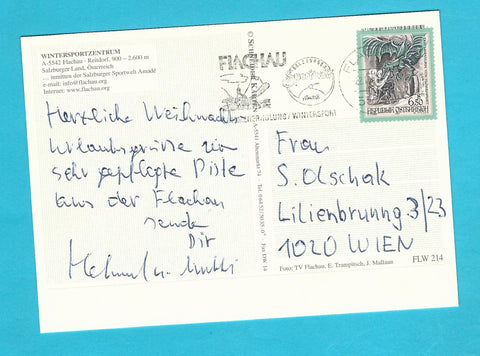 WINTERSPORTZENTRUM
A-5542 Flachau · Reitdorf, 900 – 2.600 m
Salzburger Land, Österreich
... inmitten der Salzburger Sportwelt Amadé
e-mail: info@flachau.org
Internet: www.flachau.org
Herzliche Weihnachts
urlaubsgrüsse von
sehr gepflegte Piste
aus der Flachau
sende
Dir
Helmut u.
FLACHAU
/WINTERSPORT
6.50
REPUBLIK ÖSTERREICH
Frau
S. Olschak
Lilienbrunng 3/23
1020 WIEN
Foto: TV Flachau, E. Trampitsch, J. Mallaun
FLW 214